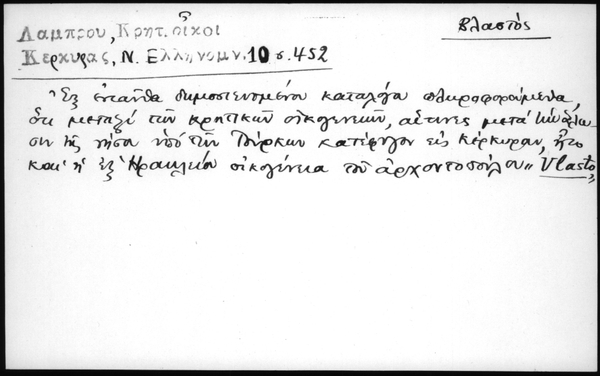 Βλαστὸς
Λαμπρου, Κρητ. οἶκοι
Κερκυρας, Ν. Ελληνομν. 10 σ. 452
Ἐξ ἐνταῦθα δημοσιευομένου καταλόγου πληροφορούμεθα,
ὅτι μεταξὺ τῶν κρητικῶν οἰκογενειῶν, αἵτινες μετὰ τὴν ἅλω-
σιν τῆς νήσου ὑπὸ τῶν Τούρκων κατέφυγον εἰς Κέρκυραν, ἦτο
καὶ ἡ ἐξ Ἡρακλείου οἰκογένεια τοῦ ἀρχοντοπούλου "Vlasto"